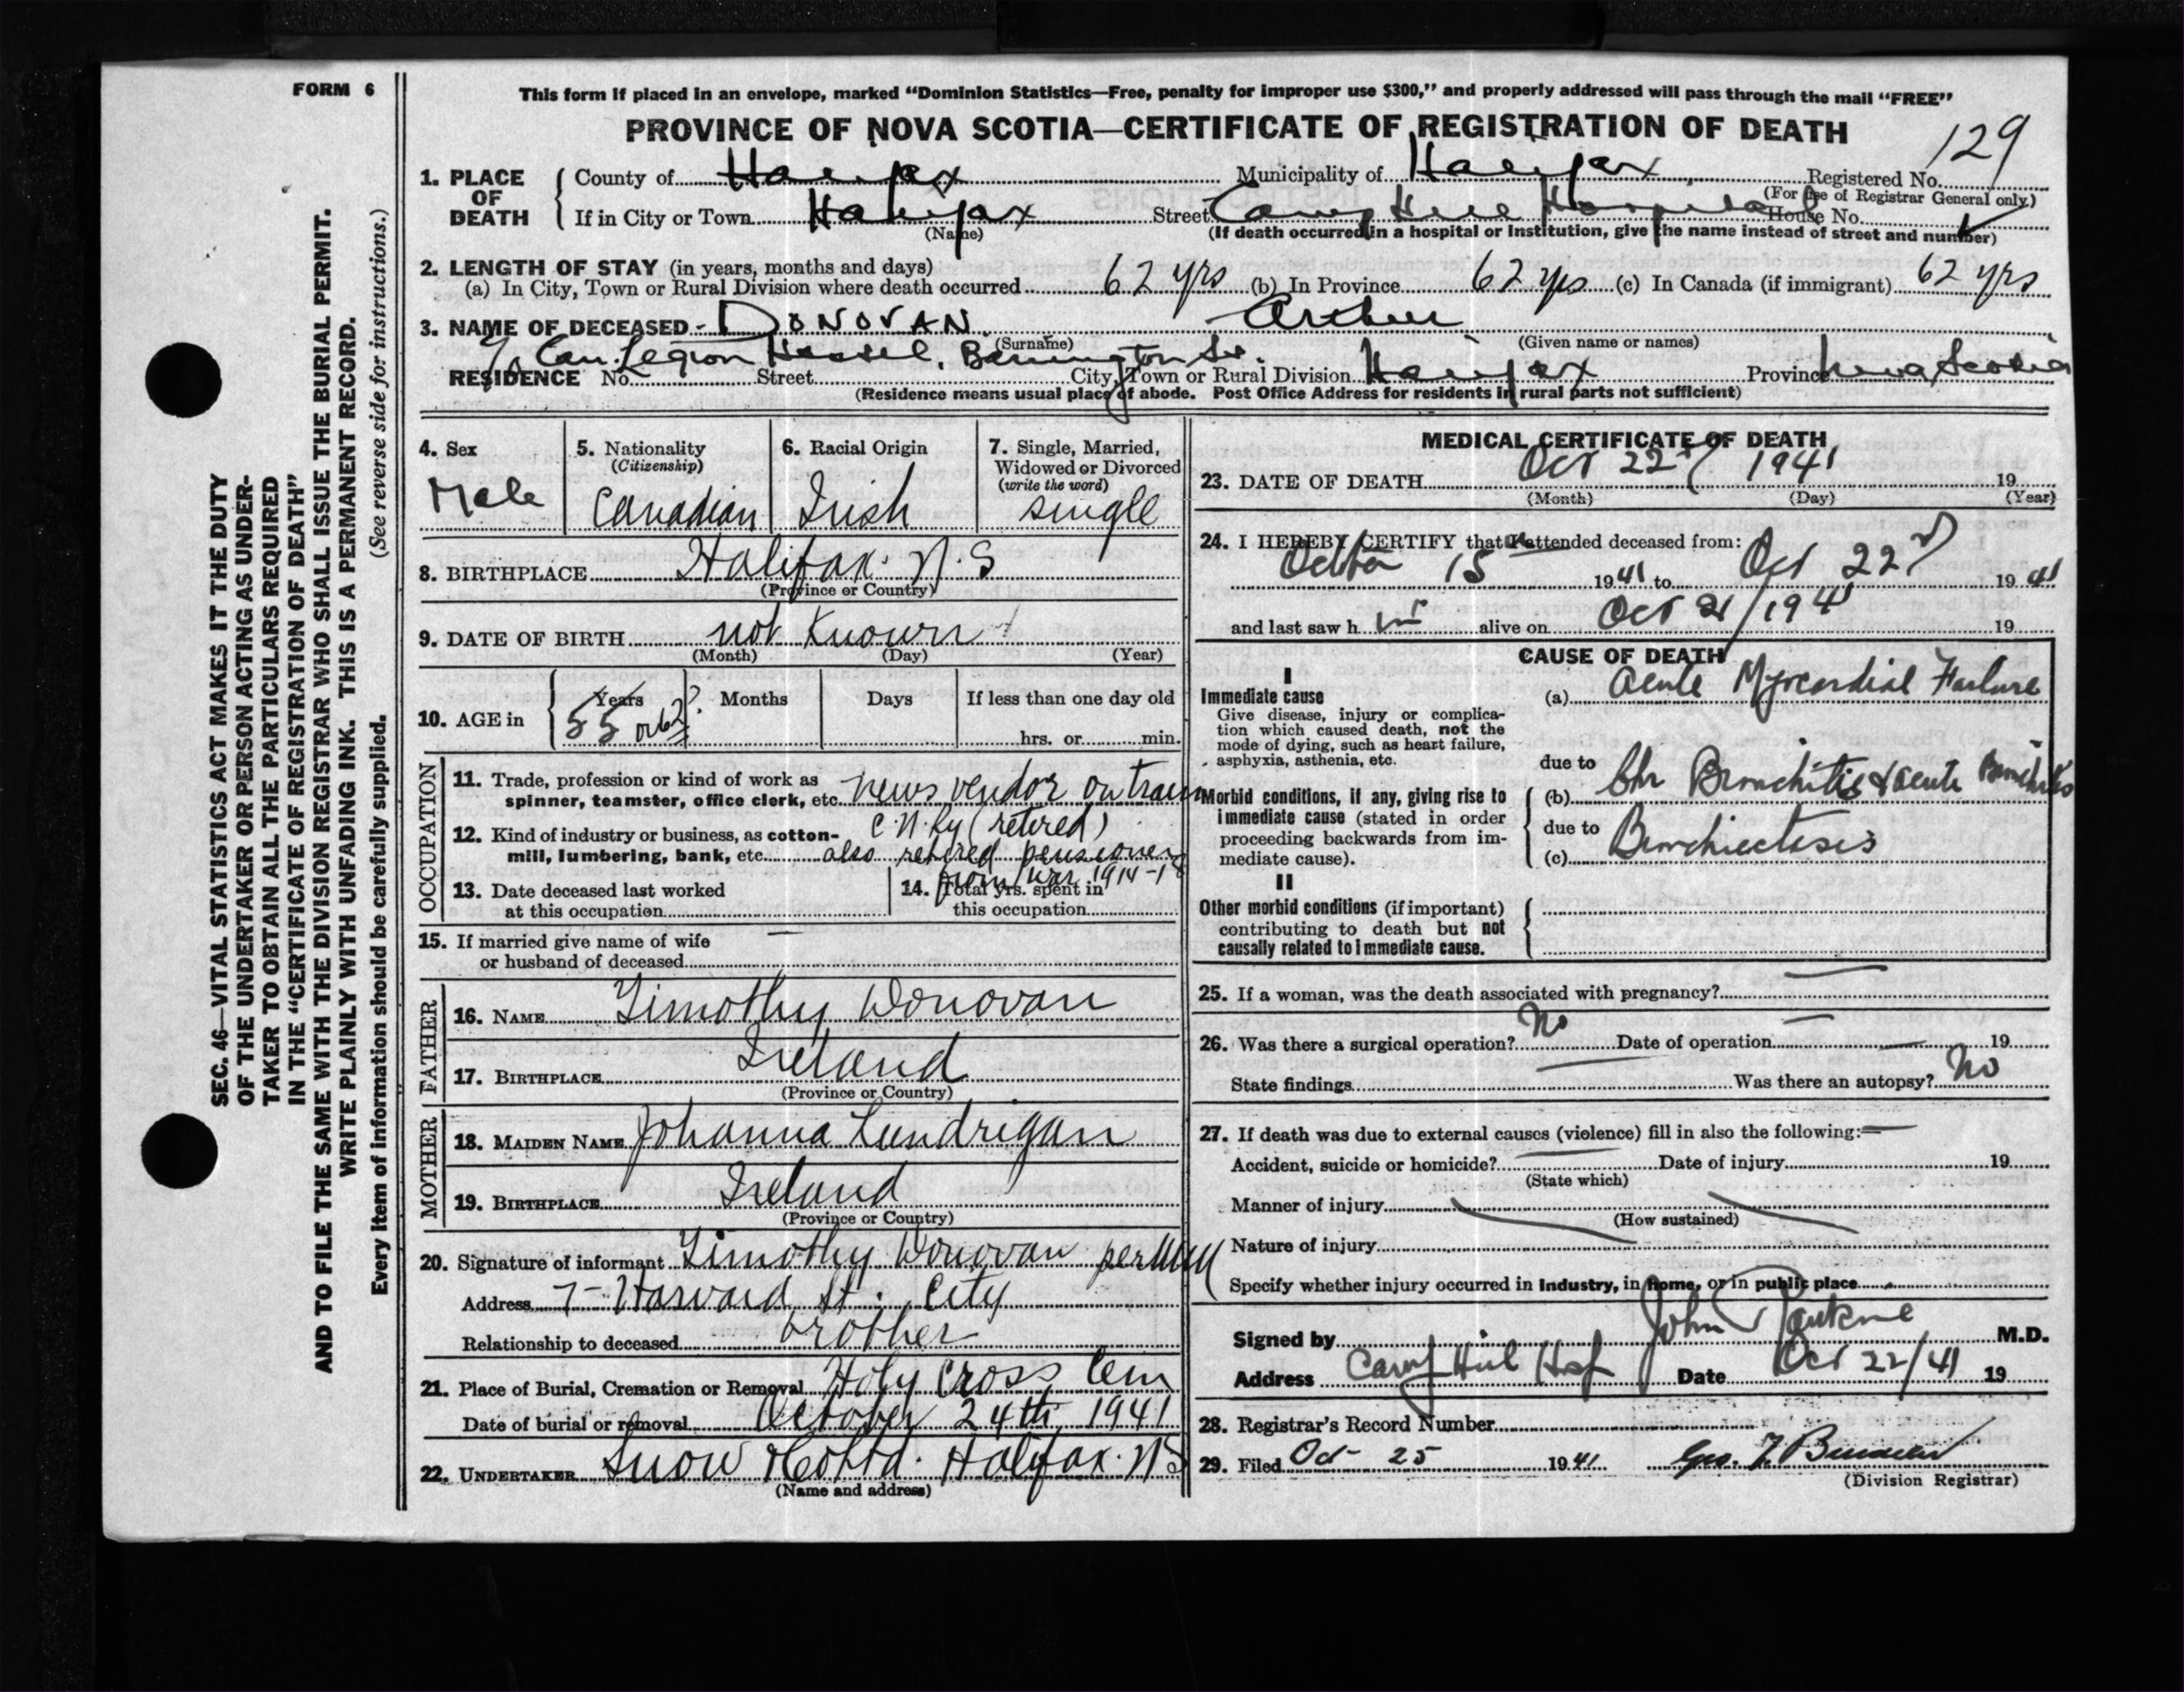 FORM 6
This form if placed in an envelope, marked “Dominion Statistics—Free, penalty for improper use $300,” and properly addressed will pass through the mail “FREE”
PROVINCE OF NOVA SCOTIA—CERTIFICATE OF REGISTRATION OF DEATH
129
1. PLACE OF DEATH { County of Halifax Municipality of Halifax Registered No.
(For use of Registrar General only)
If in City or Town Halifax Street Camp Hill Hospital House No.
(Name) (If death occurred in a hospital or institution, give the name instead of street and number)
2. LENGTH OF STAY (in years, months and days)
(a) In City, Town or Rural Division where death occurred 62 yrs (b) In Province 62 yrs (c) In Canada (if immigrant) 62 yrs
3. NAME OF DECEASED - DONOVAN Arthur
(Surname) (Given name or names)
c/o Can. Legion Hostel, Barrington St.
RESIDENCE No. Street City, Town or Rural Division Halifax Province Nova Scotia
(Residence means usual place of abode. Post Office Address for residents in rural parts not sufficient)
4. Sex
Male
5. Nationality
(Citizenship)
Canadian
6. Racial Origin
Irish
7. Single, Married,
Widowed or Divorced
(write the word)
single
8. BIRTHPLACE Halifax. N.S
(Province or Country)
9. DATE OF BIRTH not Known
(Month) (Day) (Year)
10. AGE in { Years Months Days If less than one day old
55 or 62?
hrs. or min.
OCCUPATION
11. Trade, profession or kind of work as
spinner, teamster, office clerk, etc. news vendor on train
12. Kind of industry or business, as cotton- C.N.Ry (retired)
mill, lumbering, bank, etc. also retired pensioner
from war 1914-18
13. Date deceased last worked
at this occupation
14. Total yrs. spent in
this occupation
15. If married give name of wife —
or husband of deceased
FATHER
16. NAME Timothy Donovan
17. BIRTHPLACE Ireland
(Province or Country)
MOTHER
18. MAIDEN NAME Johanna Lundrigan
19. BIRTHPLACE Ireland
(Province or Country)
20. Signature of informant Timothy Donovan per
Address 7- Harvard St. City
Relationship to deceased brother
21. Place of Burial, Cremation or Removal Holy Cross Cem
Date of burial or removal October 24th, 1941
22. UNDERTAKER Snow & Co Ltd. Halifax. NS
(Name and address)
MEDICAL CERTIFICATE OF DEATH
23. DATE OF DEATH Oct 22 / 1941 19
(Month) (Day) (Year)
24. I HEREBY CERTIFY that I attended deceased from:
October 15 1941 to Oct 22 1941
and last saw h im alive on Oct 21/1941 19
CAUSE OF DEATH
I
Immediate cause
Give disease, injury or complica-
tion which caused death, not the
mode of dying, such as heart failure,
asphyxia, asthenia, etc.
(a) Acute Myocardial Failure
due to
Morbid conditions, if any, giving rise to
immediate cause (stated in order
proceeding backwards from im-
mediate cause).
(b) Chr Bronchitis & acute Bronchitis
due to
(c) Bronchiectasis
II
Other morbid conditions (if important)
contributing to death but not
causally related to immediate cause.
25. If a woman, was the death associated with pregnancy? —
26. Was there a surgical operation? No Date of operation — 19
State findings — Was there an autopsy? No
27. If death was due to external causes (violence) fill in also the following: —
Accident, suicide or homicide? — Date of injury 19
(State which)
Manner of injury
(How sustained)
Nature of injury
Specify whether injury occurred in industry, in home, or in public place
Signed by John M.D.
Address Camp Hill Hosp Date Oct 22/41 19
28. Registrar's Record Number
29. Filed Oct 25 1941 Geo.
(Division Registrar)
SEC. 46—VITAL STATISTICS ACT MAKES IT THE DUTY
OF THE UNDERTAKER OR PERSON ACTING AS UNDER-
TAKER TO OBTAIN ALL THE PARTICULARS REQUIRED
IN THE “CERTIFICATE OF REGISTRATION OF DEATH”
AND TO FILE THE SAME WITH THE DIVISION REGISTRAR WHO SHALL ISSUE THE BURIAL PERMIT.
WRITE PLAINLY WITH UNFADING INK. THIS IS A PERMANENT RECORD.
Every item of information should be carefully supplied. (See reverse side for instructions.)